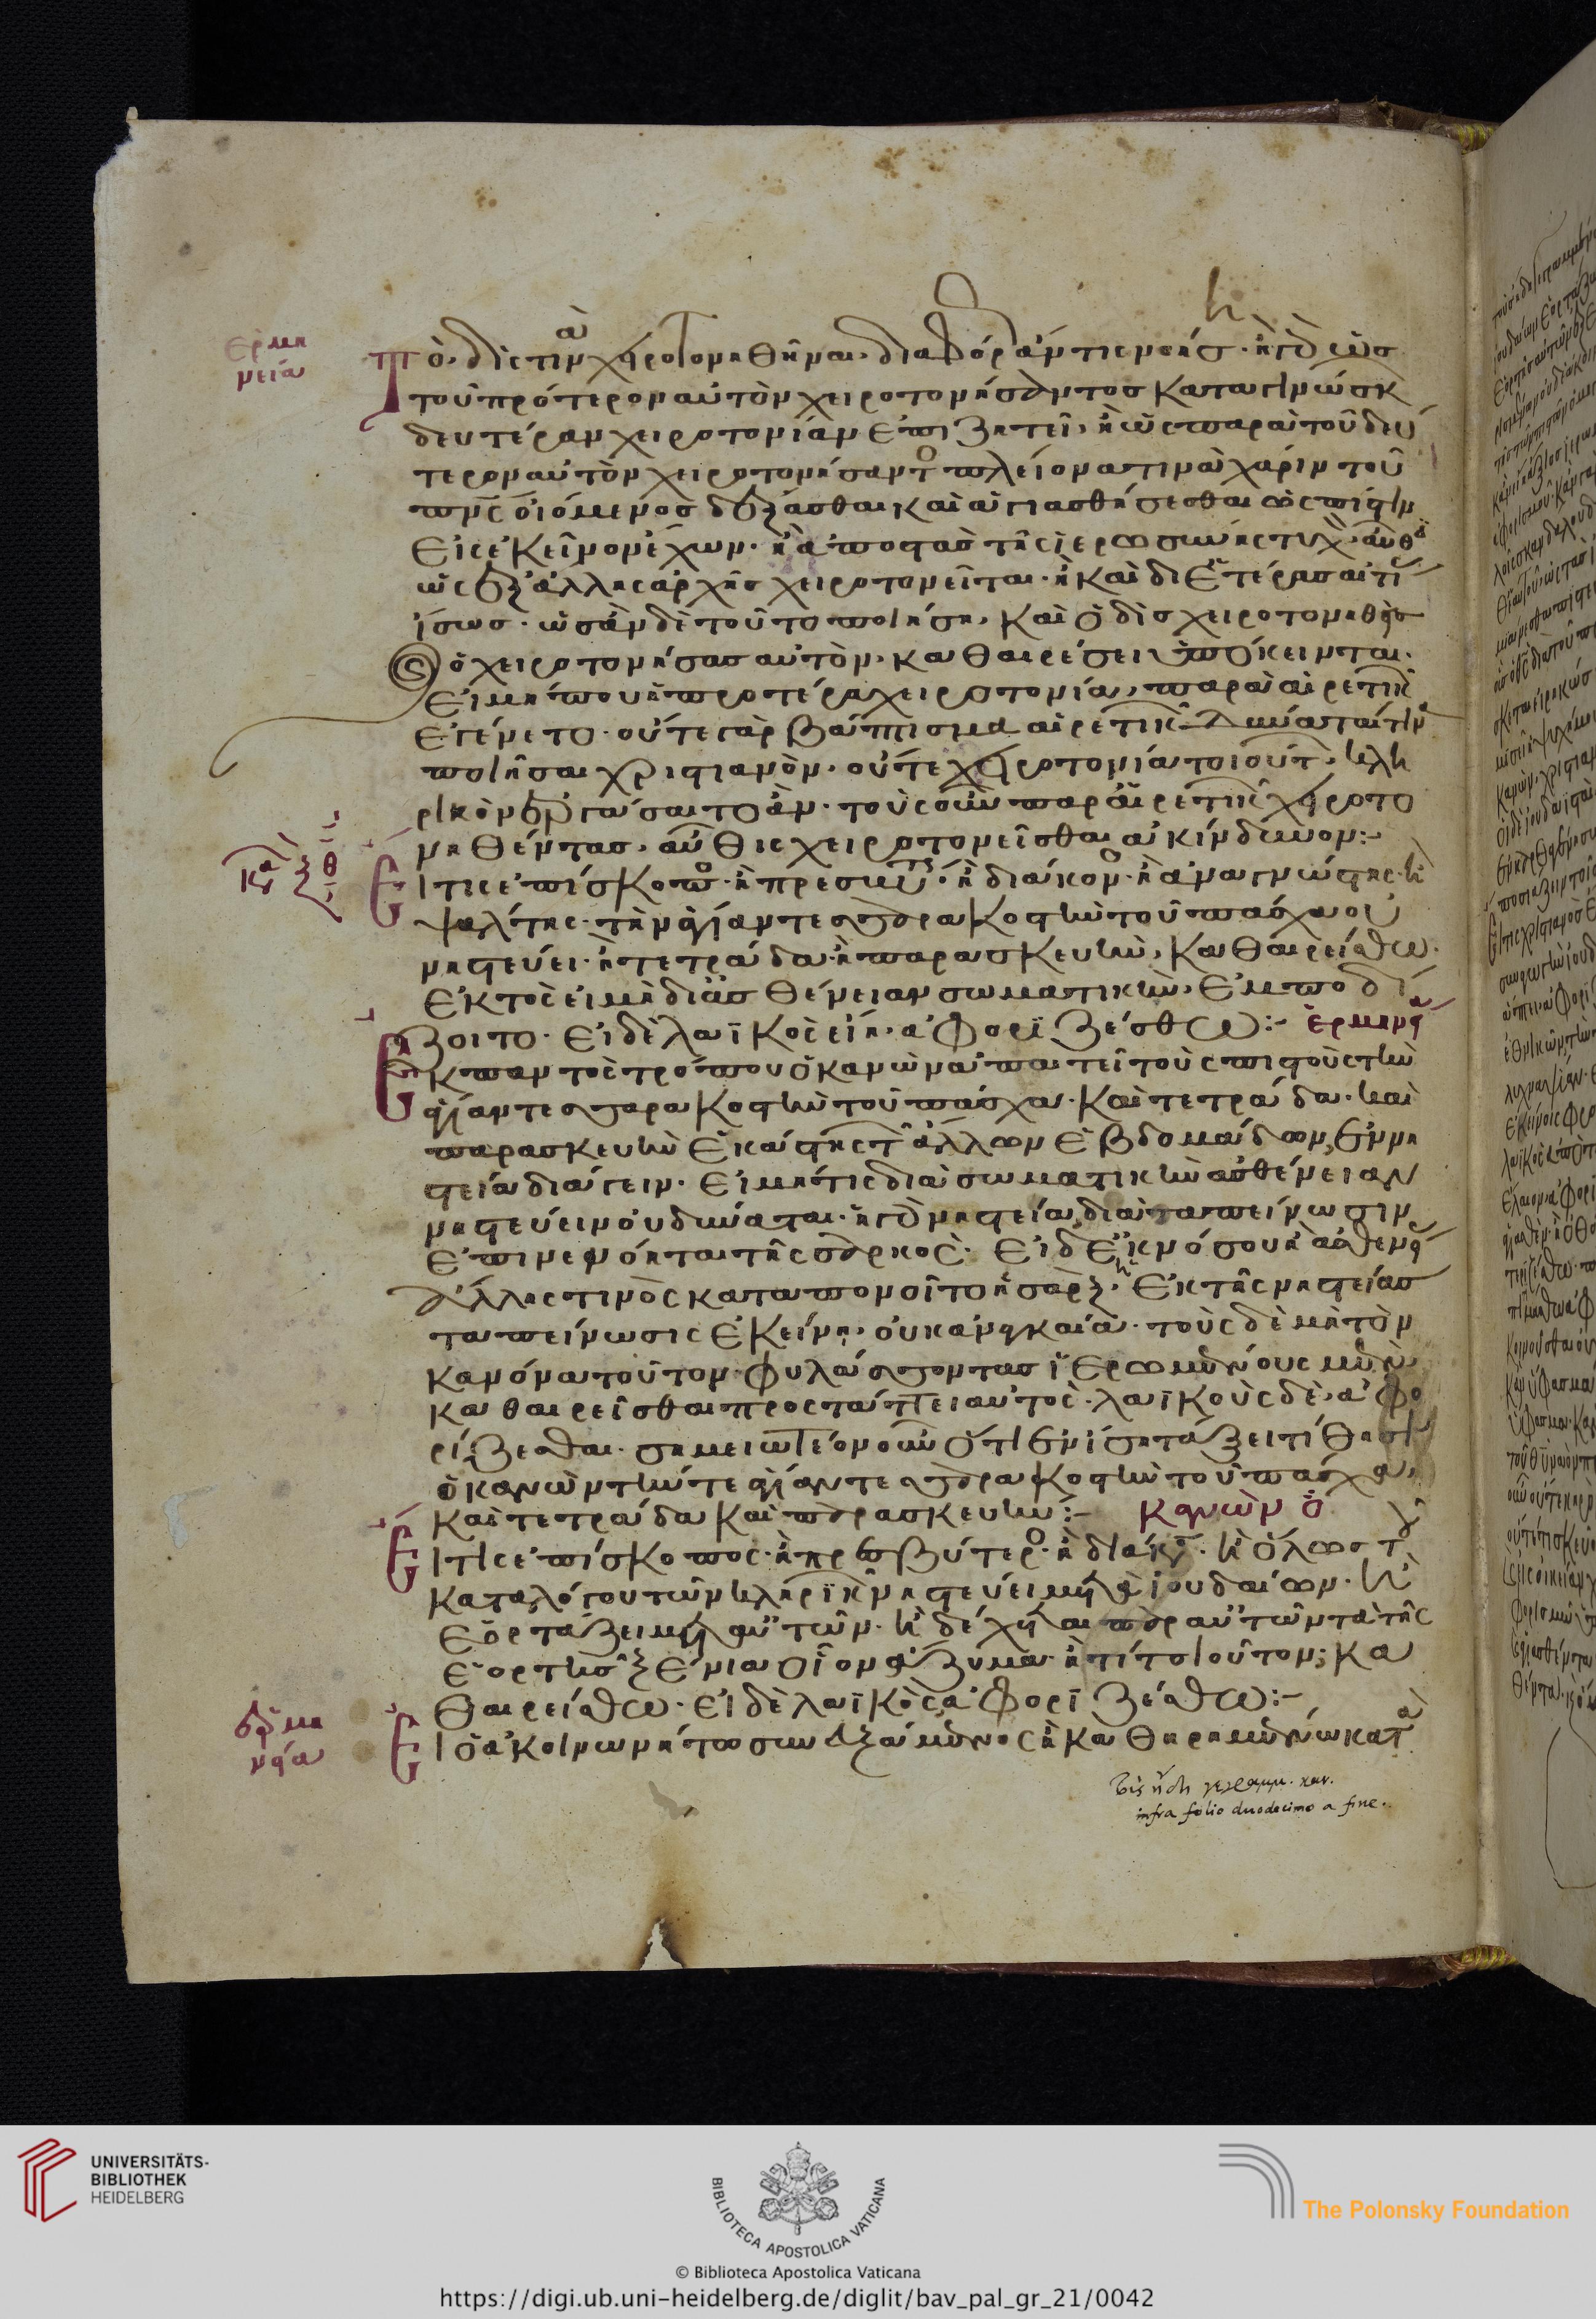 ἑρμη
νεία
Τὸ δίς τινὰ χειροτονηθῆναι διαφόρ ἂν τις νοήσ. ἢ γὰρ ὡς
τοῦ πρότερον αὐτὸν χειροτονήσαντος καταγινώσκ
δευτέραν χειροτονίαν ἐπιζητεῖ, ἢ ὡς παρὰ τοῦ δευ
τερον αὐτὸν χειροτονήσαντ πλείονα τινὰ χάριν τοῦ
πνς οἰόμενος δέξασθαι καὶ ἁγιασθήσεσθαι ὡς πίστιν
εἰς ἐκεῖνον ἔχων. ἢ ἀποστὰς τῆς ἱερωσύνης
ὡς ἐξ ἄλλης ἀρχῆς χειροτονεῖται. ἢ καὶ δι ἑτέρας αἰτί
ἴσως. ὡσὰν δὲ τοῦτο ποιήση, καὶ ὁ δὶς χειροτονηθεὶς
ὁ χειροτονήσας αὐτὸν, καθαιρέσει ὑπόκεινται.
εἰ μήπου ἡ προτέρα χειροτονία, παρὰ αἱρετικ
ἐγένετο. οὔτε γὰρ βάπτισμα αἱρετικ δύναταί τιν
ποιῆσαι χριστιανὸν. οὔτε χειροτονία τοιούτ, κλη
ρικὸν ἐργάσαιτο ἂν. τοὺς οὖν παρ αἱρετικ χειροτο
νηθέντας, αὖθις χειροτονεῖσθαι ἀκίνδυνον:-
κα ξθ
Εἴ τις ἐπίσκοπ. ἢ πρεσβύτ. ἢ διάκον. ἢ ἀναγνώστης. ἢ
ψάλτης. τὴν ἁγίαν τεσσαρακοστὴν τοῦ πάσχα οὐ
νηστεύει. ἢ τετράδα. ἢ παρασκευὴν, καθαιρείσθω.
ἐκτὸς εἰ μὴ δι ἀσθένειαν σωματικὴν, ἐμποδί
ζοιτο. εἰ δὲ λαϊκὸς εἴη. ἀφοριζέσθω:- ἑρμηνεία
Ἐκ παντὸς τρόπου ὁ κανὼν ἀπαιτεῖ τοὺς πιστοὺς τὴν
ἁγίαν τεσσαρακοστὴν τοῦ πάσχα. καὶ τετράδα. καὶ
παρασκευὴν ἑκάστης τ ἄλλων ἑβδομάδων, ἐν νη
στεία διάγειν. εἰ μή τις διὰ σωματικὴν ἀσθένειαν
νηστεύειν οὐ δύναται. ἡ γὰρ νηστεία, διὰ ταπείνωσιν
ἐπινενόηται τῆς σαρκός. εἰ δὲ ἐκ νόσου ἢ ἀσθενεί
ἄλλης τινὸς καταπονοῖτο ἡ σὰρξ, ἡ ἐκ τῆς νηστείας
ταπείνωσις ἐκείνη, οὐκ ἀναγκαία. τοὺς δὲ μὴ τὸν
κανόνα τοῦτον φυλάσσοντας ἱερωμένους μὲν
καθαιρεῖσθαι προστάττει αὐτός. λαϊκοὺς δὲ, ἀφο
ρίζεσθαι. σημειωτέον οὖν ὅτι ἐν ἴση τάξει τίθησιν
ὁ κανὼν τήν τε ἁγίαν τεσσαρακοστὴν τοῦ πάσχα,
καὶ τετράδα καὶ παρασκευὴν:- κανὼν ο
Εἴ τις ἐπίσκοπος. ἢ πρεσβύτερ. ἢ διάκ. ἢ ὅλως τ
καταλόγου τῶν κληρικ νηστεύει μετὰ ἰουδαίων. ἢ
ἑορτάζει μετ αὐτῶν. ἢ δέχεται παρ αὐτῶν τὰ τῆς
ἑορτῆς ξένια οἷον ἄζυμα. ἤ τι τοιοῦτον; κα
θαιρείσθω. εἰ δὲ λαϊκὸς ἀφοριζέσθω:-
ἑρμη
νεία
Εἰ ὁ ἀκοινωνήτω συνευξάμενος ἢ καθηρημένω κατ
bis ἤδη γεγραμμ. καν.
infra folio duodecimo a fine.
UNIVERSITÄTS-
BIBLIOTHEK
HEIDELBERG
BIBLIOTECA APOSTOLICA VATICANA
The Polonsky Foundation
© Biblioteca Apostolica Vaticana
https://digi.ub.uni-heidelberg.de/diglit/bav_pal_gr_21/0042